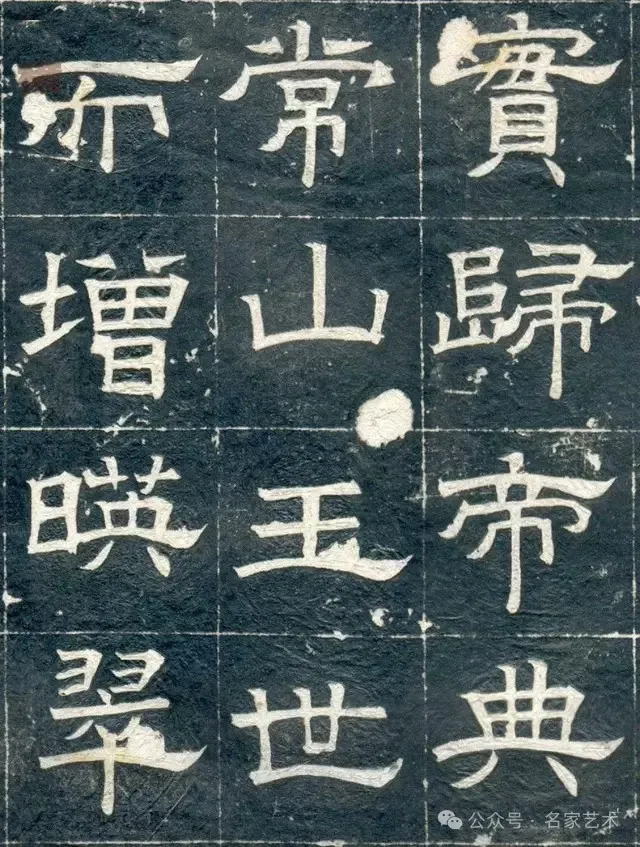 實歸帝典
常山王世
而增暎翠
公众号：名家艺术